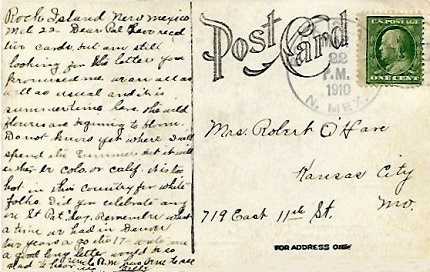 Rock Island New Mexico
Mch 22- Dear Pal Have recd
two cards but am still
looking for the letter you
promised me. we are all as
well as usual and it is
summertime here the wild
flowers are beginning to bloom.
Do not know yet where I will
spend the summer but it will
either be Colo. or Calif. it is too
hot in this country for white
folks. Did you celebrate any
on St Pat. day. Remember what
a time we had in Denver
two years ago the 17- write me
a good long letter would be so
glad to hear
Post Card
22
P.M.
1910
N. MEX.
U.S. POSTAGE
ONE CENT
Mrs. Robert O'Hare
Kansas City
Mo.
719 East 11th St.
FOR ADDRESS ONLY